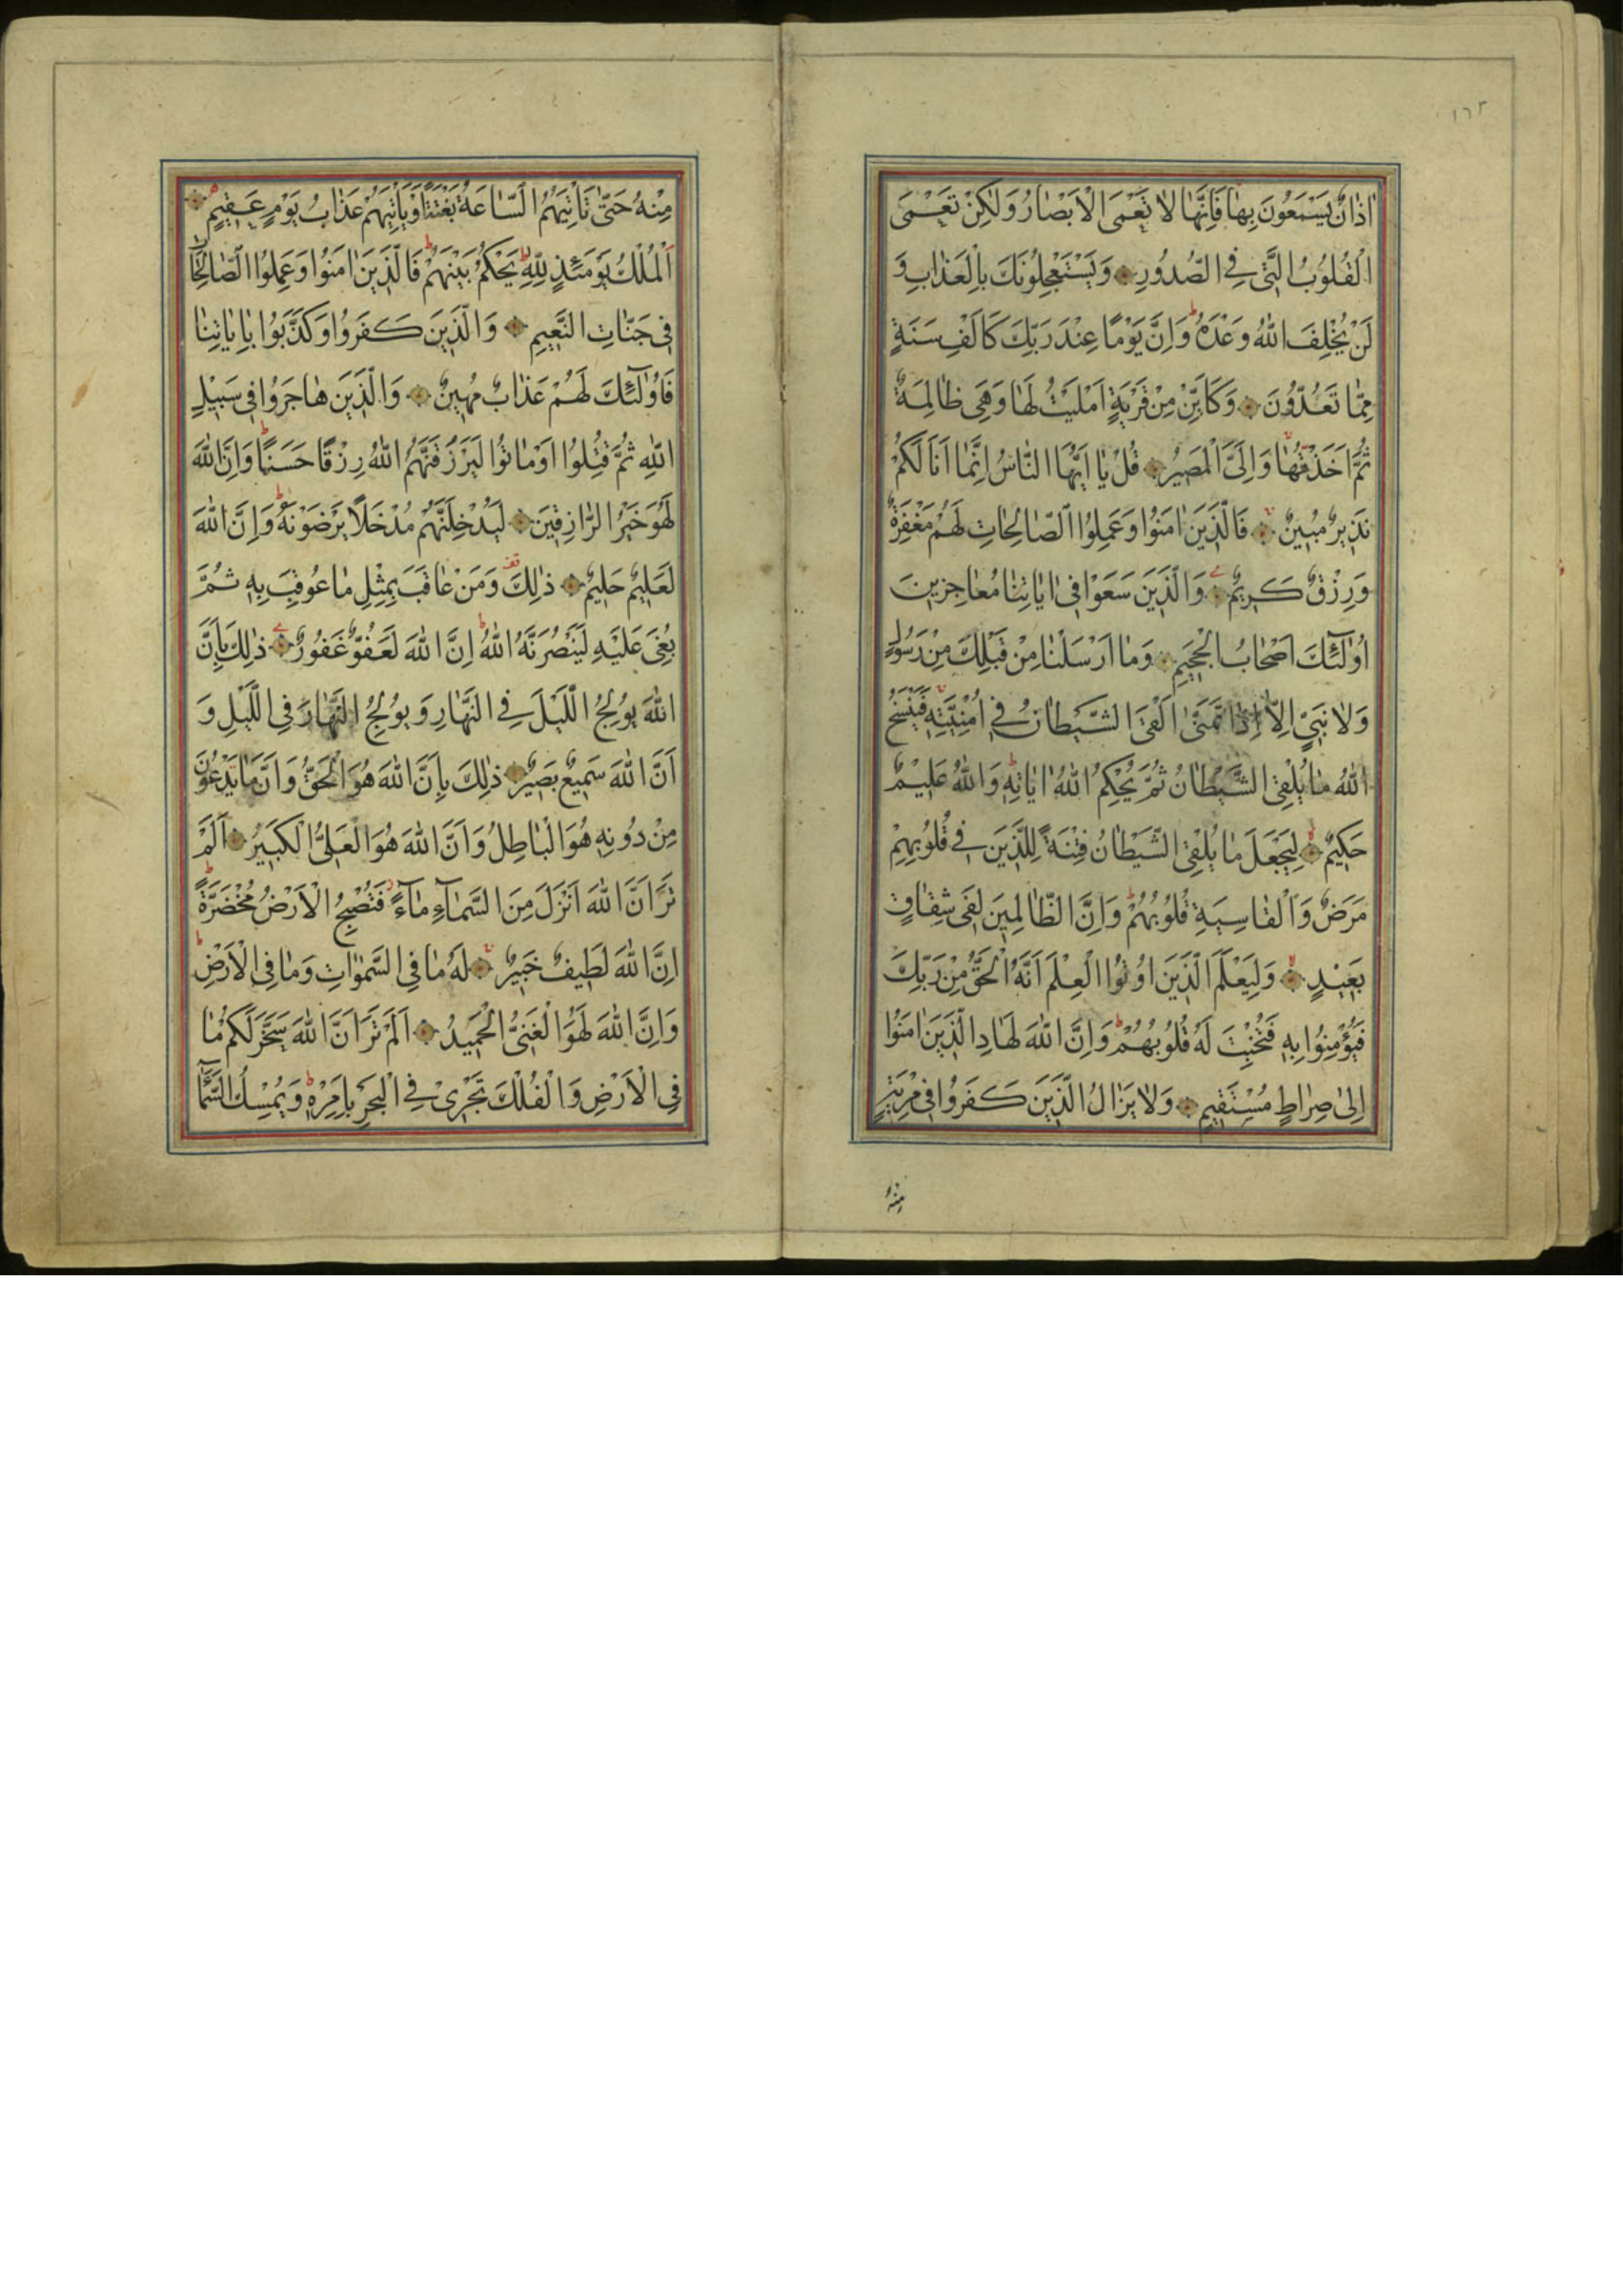 ١٦٣
اٰذَانٌ يَسْمَعُونَ بِهَا فَاِنَّهَا لَا تَعْمَى الْاَبْصَارُ وَلٰكِنْ تَعْمَى
الْقُلُوبُ الَّتِى فِى الصُّدُورِ وَيَسْتَعْجِلُونَكَ بِالْعَذَابِ وَ
لَنْ يُخْلِفَ اللّٰهُ وَعْدَهُ وَاِنَّ يَوْمًا عِنْدَ رَبِّكَ كَاَلْفِ سَنَةٍ
مِمَّا تَعُدُّونَ وَكَاَيِّنْ مِنْ قَرْيَةٍ اَمْلَيْتُ لَهَا وَهِىَ ظَالِمَةٌ
ثُمَّ اَخَذْتُهَا وَاِلَىَّ الْمَصِيرُ قُلْ يَا اَيُّهَا النَّاسُ اِنَّمَا اَنَا لَكُمْ
نَذِيرٌ مُبِينٌ فَالَّذِينَ اٰمَنُوا وَعَمِلُوا الصَّالِحَاتِ لَهُمْ مَغْفِرَةٌ
وَرِزْقٌ كَرِيمٌ وَالَّذِينَ سَعَوْا فِى اٰيَاتِنَا مُعَاجِزِينَ
اُولٰئِكَ اَصْحَابُ الْجَحِيمِ وَمَا اَرْسَلْنَا مِنْ قَبْلِكَ مِنْ رَسُولٍ
وَلَا نَبِىٍّ اِلَّا اِذَا تَمَنّٰى اَلْقَى الشَّيْطَانُ فِى اُمْنِيَّتِهِ فَيَنْسَخُ
اللّٰهُ مَا يُلْقِى الشَّيْطَانُ ثُمَّ يُحْكِمُ اللّٰهُ اٰيَاتِهِ وَاللّٰهُ عَلِيمٌ
حَكِيمٌ لِيَجْعَلَ مَا يُلْقِى الشَّيْطَانُ فِتْنَةً لِلَّذِينَ فِى قُلُوبِهِمْ
مَرَضٌ وَالْقَاسِيَةِ قُلُوبُهُمْ وَاِنَّ الظَّالِمِينَ لَفِى شِقَاقٍ
بَعِيدٍ وَلِيَعْلَمَ الَّذِينَ اُوتُوا الْعِلْمَ اَنَّهُ الْحَقُّ مِنْ رَبِّكَ
فَيُؤْمِنُوا بِهِ فَتُخْبِتَ لَهُ قُلُوبُهُمْ وَاِنَّ اللّٰهَ لَهَادِ الَّذِينَ اٰمَنُوا
اِلٰى صِرَاطٍ مُسْتَقِيمٍ وَلَا يَزَالُ الَّذِينَ كَفَرُوا فِى مِرْيَةٍ
مِنْهُ
مِنْهُ حَتّٰى تَاْتِيَهُمُ السَّاعَةُ بَغْتَةً اَوْ يَاْتِيَهُمْ عَذَابُ يَوْمٍ عَقِيمٍ
اَلْمُلْكُ يَوْمَئِذٍ لِلّٰهِ يَحْكُمُ بَيْنَهُمْ فَالَّذِينَ اٰمَنُوا وَعَمِلُوا الصَّالِحَاتِ
فِى جَنَّاتِ النَّعِيمِ وَالَّذِينَ كَفَرُوا وَكَذَّبُوا بِاٰيَاتِنَا
فَاُولٰئِكَ لَهُمْ عَذَابٌ مُهِينٌ وَالَّذِينَ هَاجَرُوا فِى سَبِيلِ
اللّٰهِ ثُمَّ قُتِلُوا اَوْ مَاتُوا لَيَرْزُقَنَّهُمُ اللّٰهُ رِزْقًا حَسَنًا وَاِنَّ اللّٰهَ
لَهُوَ خَيْرُ الرَّازِقِينَ لَيُدْخِلَنَّهُمْ مُدْخَلًا يَرْضَوْنَهُ وَاِنَّ اللّٰهَ
لَعَلِيمٌ حَلِيمٌ ذٰلِكَ وَمَنْ عَاقَبَ بِمِثْلِ مَا عُوقِبَ بِهِ ثُمَّ
بُغِىَ عَلَيْهِ لَيَنْصُرَنَّهُ اللّٰهُ اِنَّ اللّٰهَ لَعَفُوٌّ غَفُورٌ ذٰلِكَ بِاَنَّ
اللّٰهَ يُولِجُ اللَّيْلَ فِى النَّهَارِ وَيُولِجُ النَّهَارَ فِى اللَّيْلِ وَ
اَنَّ اللّٰهَ سَمِيعٌ بَصِيرٌ ذٰلِكَ بِاَنَّ اللّٰهَ هُوَ الْحَقُّ وَاَنَّ مَا يَدْعُونَ
مِنْ دُونِهِ هُوَ الْبَاطِلُ وَاَنَّ اللّٰهَ هُوَ الْعَلِىُّ الْكَبِيرُ اَلَمْ
تَرَ اَنَّ اللّٰهَ اَنْزَلَ مِنَ السَّمَاءِ مَاءً فَتُصْبِحُ الْاَرْضُ مُخْضَرَّةً
اِنَّ اللّٰهَ لَطِيفٌ خَبِيرٌ لَهُ مَا فِى السَّمٰوَاتِ وَمَا فِى الْاَرْضِ
وَاِنَّ اللّٰهَ لَهُوَ الْغَنِىُّ الْحَمِيدُ اَلَمْ تَرَ اَنَّ اللّٰهَ سَخَّرَ لَكُمْ مَا
فِى الْاَرْضِ وَالْفُلْكَ تَجْرِى فِى الْبَحْرِ بِاَمْرِهِ وَيُمْسِكُ السَّمَاءَ